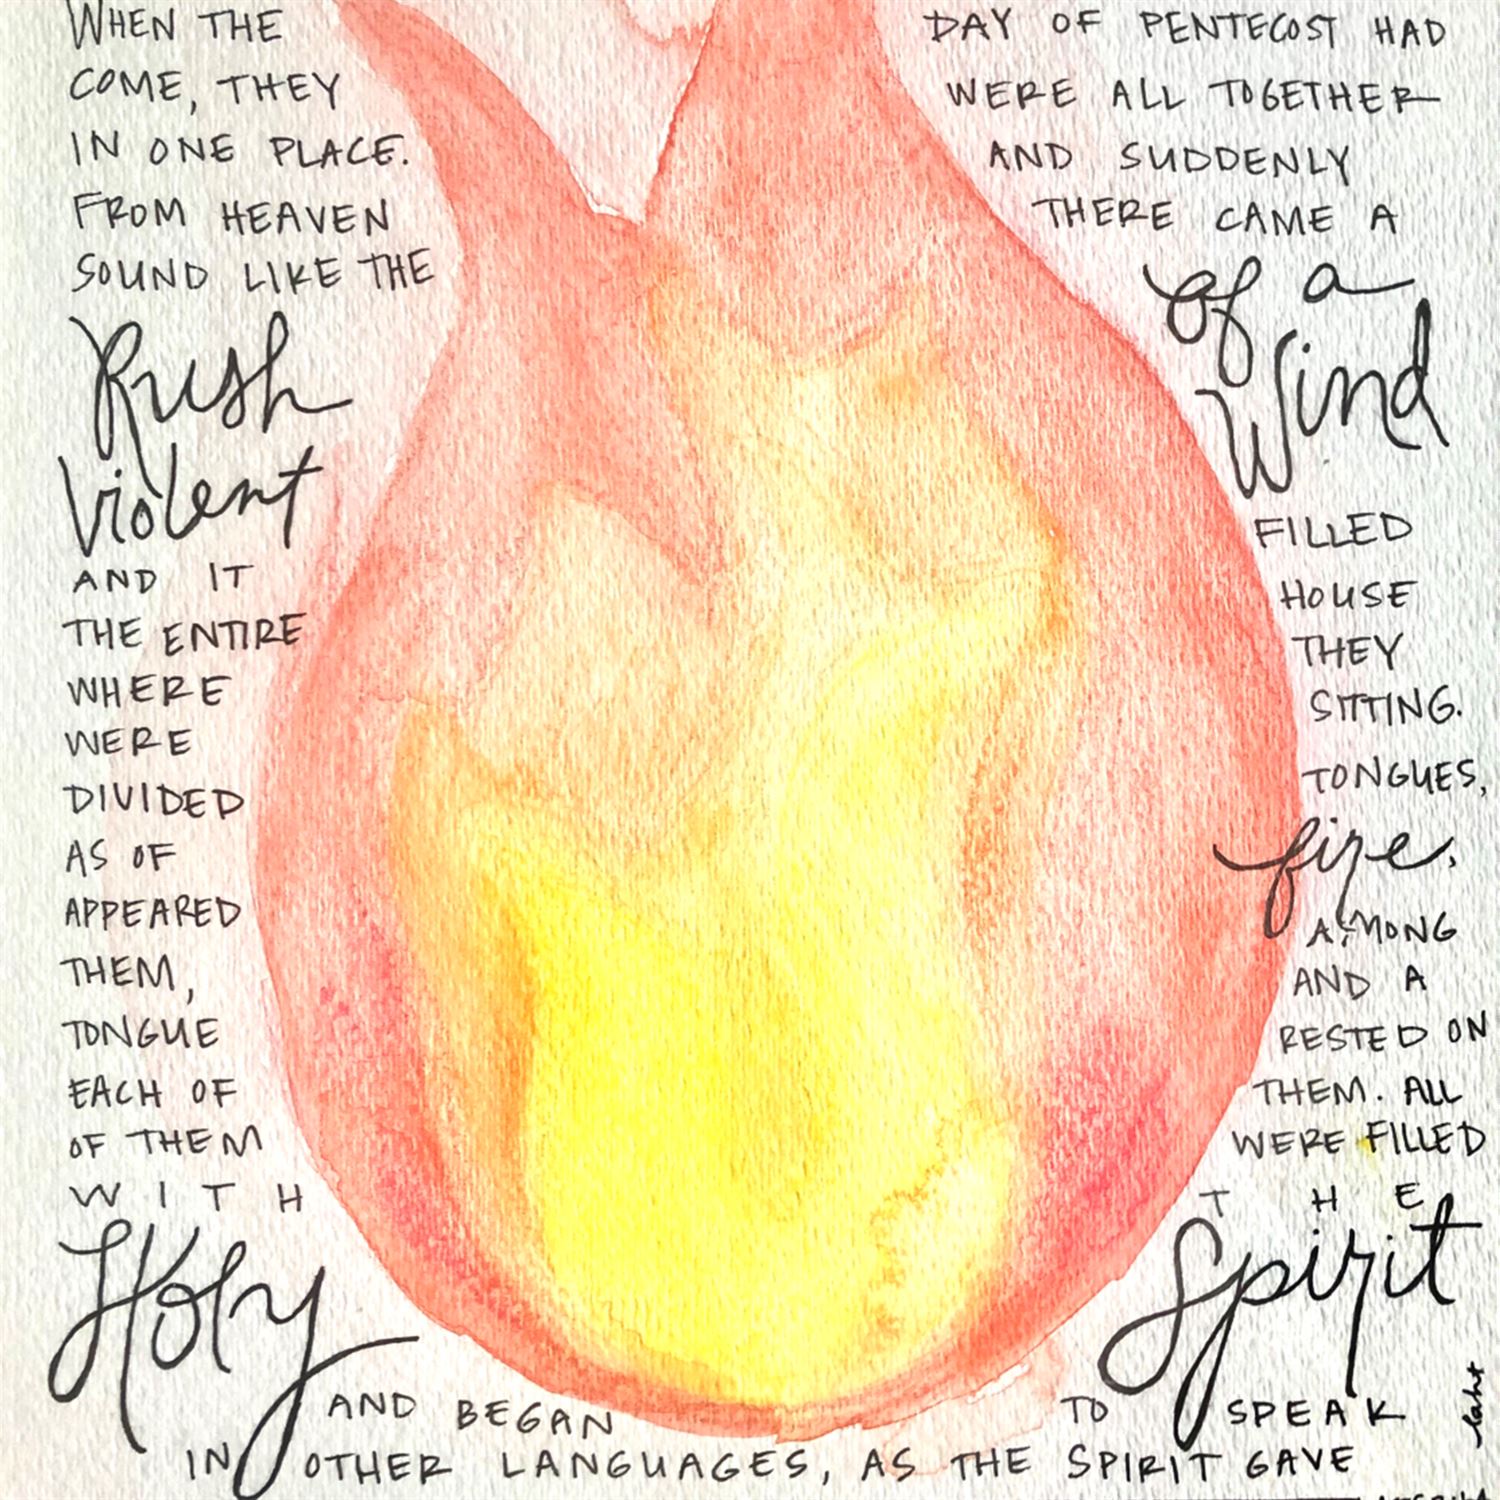 WHEN THE DAY OF PENTECOST HAD
COME, THEY WERE ALL TOGETHER
IN ONE PLACE. AND SUDDENLY
FROM HEAVEN THERE CAME A
SOUND LIKE THE
Rush of a
Violent Wind
AND IT FILLED
THE ENTIRE HOUSE
WHERE THEY
WERE SITTING.
DIVIDED TONGUES,
AS OF fire,
APPEARED AMONG
THEM, AND A
TONGUE RESTED ON
EACH OF THEM. ALL
OF THEM WERE FILLED
WITH THE
Holy Spirit
AND BEGAN TO SPEAK
IN OTHER LANGUAGES, AS THE SPIRIT GAVE